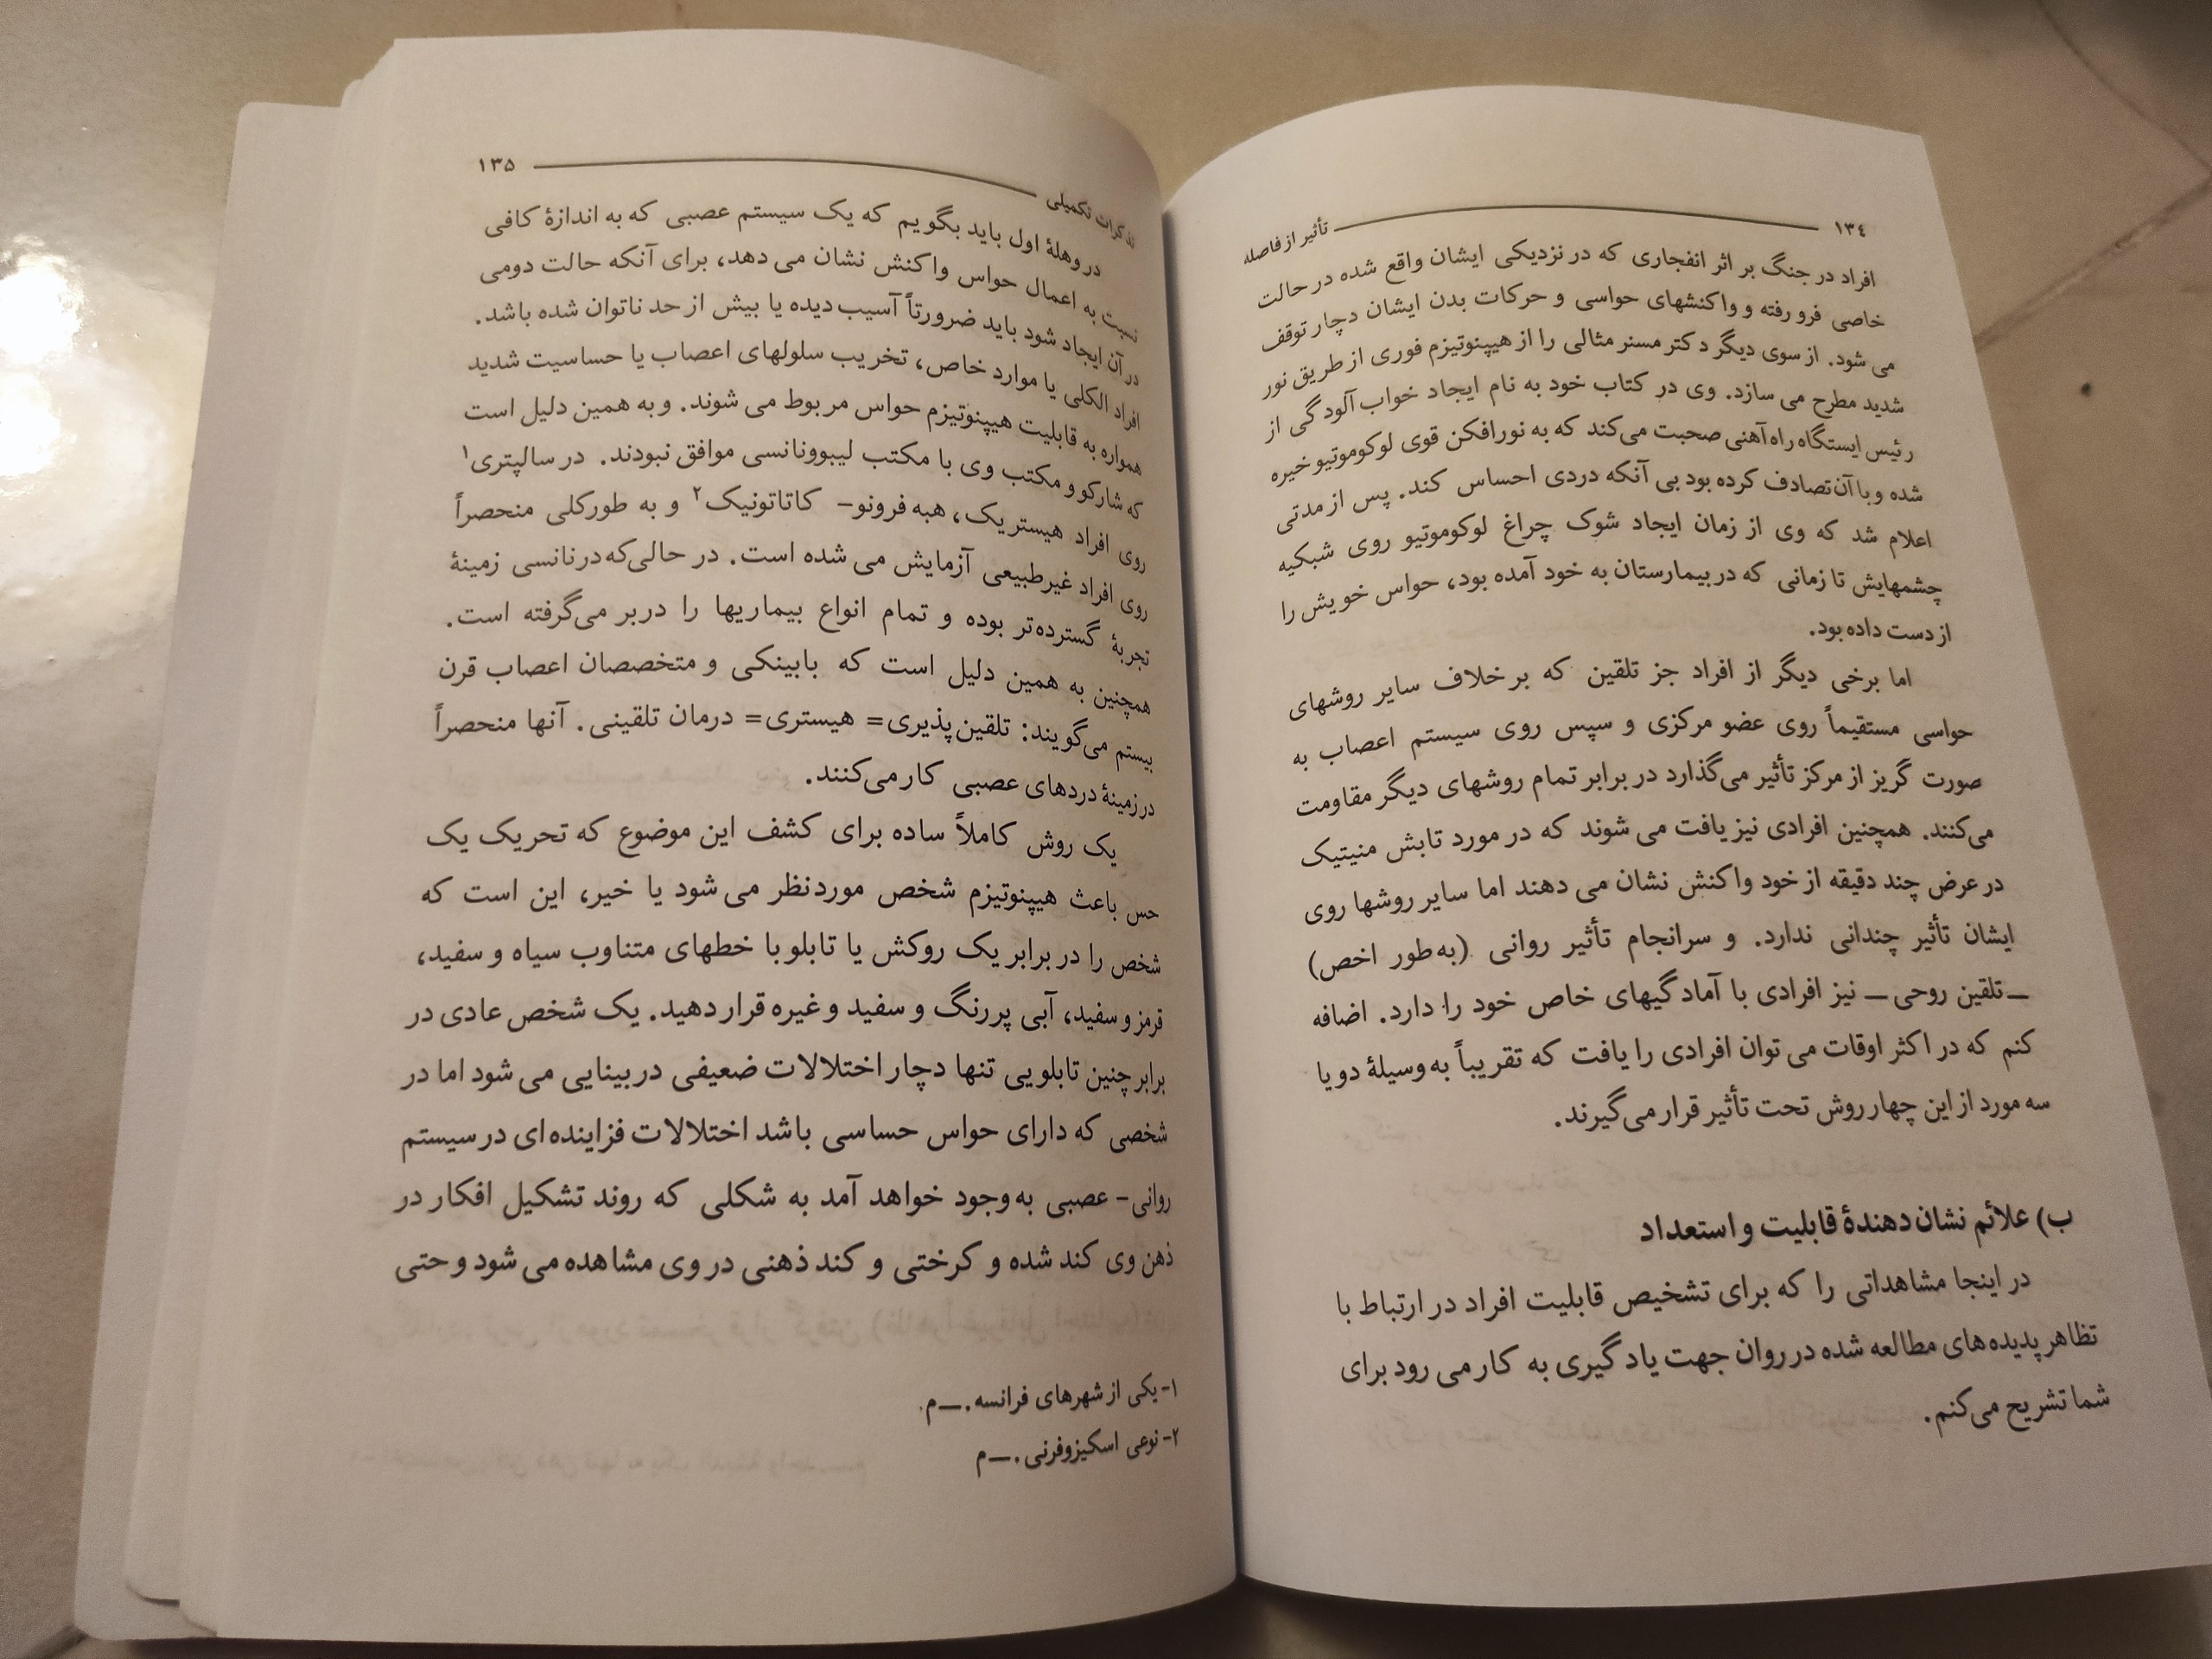 ۱۳٤
تأثیر از فاصله
افراد در جنگ بر اثر انفجاری که در نزدیکی ایشان واقع شده در حالت
خاصی فرو رفته و واکنشهای حواسی و حرکات بدن ایشان دچار توقف
می شود. از سوی دیگر دکتر مسنر مثالی را از هیپنوتیزم فوری از طریق نور
شدید مطرح می سازد. وی در کتاب خود به نام ایجاد خواب آلودگی از
رئیس ایستگاه راه آهنی صحبت می‌کند که به نورافکن قوی لوکوموتیو خیره
شده و با آن تصادف کرده بود بی آنکه دردی احساس کند. پس از مدتی
اعلام شد که وی از زمان ایجاد شوک چراغ لوکوموتیو روی شبکیه
چشمهایش تا زمانی که در بیمارستان به خود آمده بود، حواس خویش را
از دست داده بود.
اما برخی دیگر از افراد جز تلقین که بر خلاف سایر روشهای
حواسی مستقیماً روی عضو مرکزی و سپس روی سیستم اعصاب به
صورت گریز از مرکز تأثیر می‌گذارد در برابر تمام روشهای دیگر مقاومت
می‌کنند. همچنین افرادی نیز یافت می شوند که در مورد تابش منیتیک
در عرض چند دقیقه از خود واکنش نشان می دهند اما سایر روشها روی
ایشان تأثیر چندانی ندارد. و سرانجام تأثیر روانی (به‌طور اخص)
ــ تلقین روحی ــ نیز افرادی با آمادگیهای خاص خود را دارد. اضافه
کنم که در اکثر اوقات می توان افرادی را یافت که تقریباً به وسیلهٔ دو یا
سه مورد از این چهار روش تحت تأثیر قرار می‌گیرند.
ب) علائم نشان دهندهٔ قابلیت و استعداد
در اینجا مشاهداتی را که برای تشخیص قابلیت افراد در ارتباط با
تظاهر پدیده های مطالعه شده در روان جهت یادگیری به کار می رود برای
شما تشریح می‌کنم.
تذکرات تکمیلی
۱۳۵
در وهلهٔ اول باید بگویم که یک سیستم عصبی که به اندازهٔ کافی
نسبت به اعمال حواس واکنش نشان می دهد، برای آنکه حالت دومی
در آن ایجاد شود باید ضرورتاً آسیب دیده یا بیش از حد ناتوان شده باشد.
افراد الکلی یا موارد خاص، تخریب سلولهای اعصاب یا حساسیت شدید
همواره به قابلیت هیپنوتیزم حواس مربوط می شوند. و به همین دلیل است
که شارکو و مکتب وی با مکتب لیبوونانسی موافق نبودند. در سالپتری۱
روی افراد هیستریک، هبه فرونو- کاتاتونیک۲ و به طورکلی منحصراً
روی افراد غیرطبیعی آزمایش می شده است. در حالی‌که در نانسی زمینهٔ
تجربهٔ گسترده‌تر بوده و تمام انواع بیماریها را دربر می‌گرفته است.
همچنین به همین دلیل است که بابینکی و متخصصان اعصاب قرن
بیستم می‌گویند: تلقین پذیری= هیستری= درمان تلقینی. آنها منحصراً
در زمینهٔ دردهای عصبی کار می‌کنند.
یک روش کاملاً ساده برای کشف این موضوع که تحریک یک
حس باعث هیپنوتیزم شخص موردنظر می شود یا خیر، این است که
شخص را در برابر یک روکش یا تابلو با خطهای متناوب سیاه و سفید،
قرمز و سفید، آبی پررنگ و سفید و غیره قرار دهید. یک شخص عادی در
برابر چنین تابلویی تنها دچار اختلالات ضعیفی در بینایی می شود اما در
شخصی که دارای حواس حساسی باشد اختلالات فزاینده ای در سیستم
روانی- عصبی به وجود خواهد آمد به شکلی که روند تشکیل افکار در
ذهن وی کند شده و کرختی و کند ذهنی در وی مشاهده می شود و حتی
۱- یکی از شهرهای فرانسه. ــ م.
۲- نوعی اسکیزوفرنی. ــ م